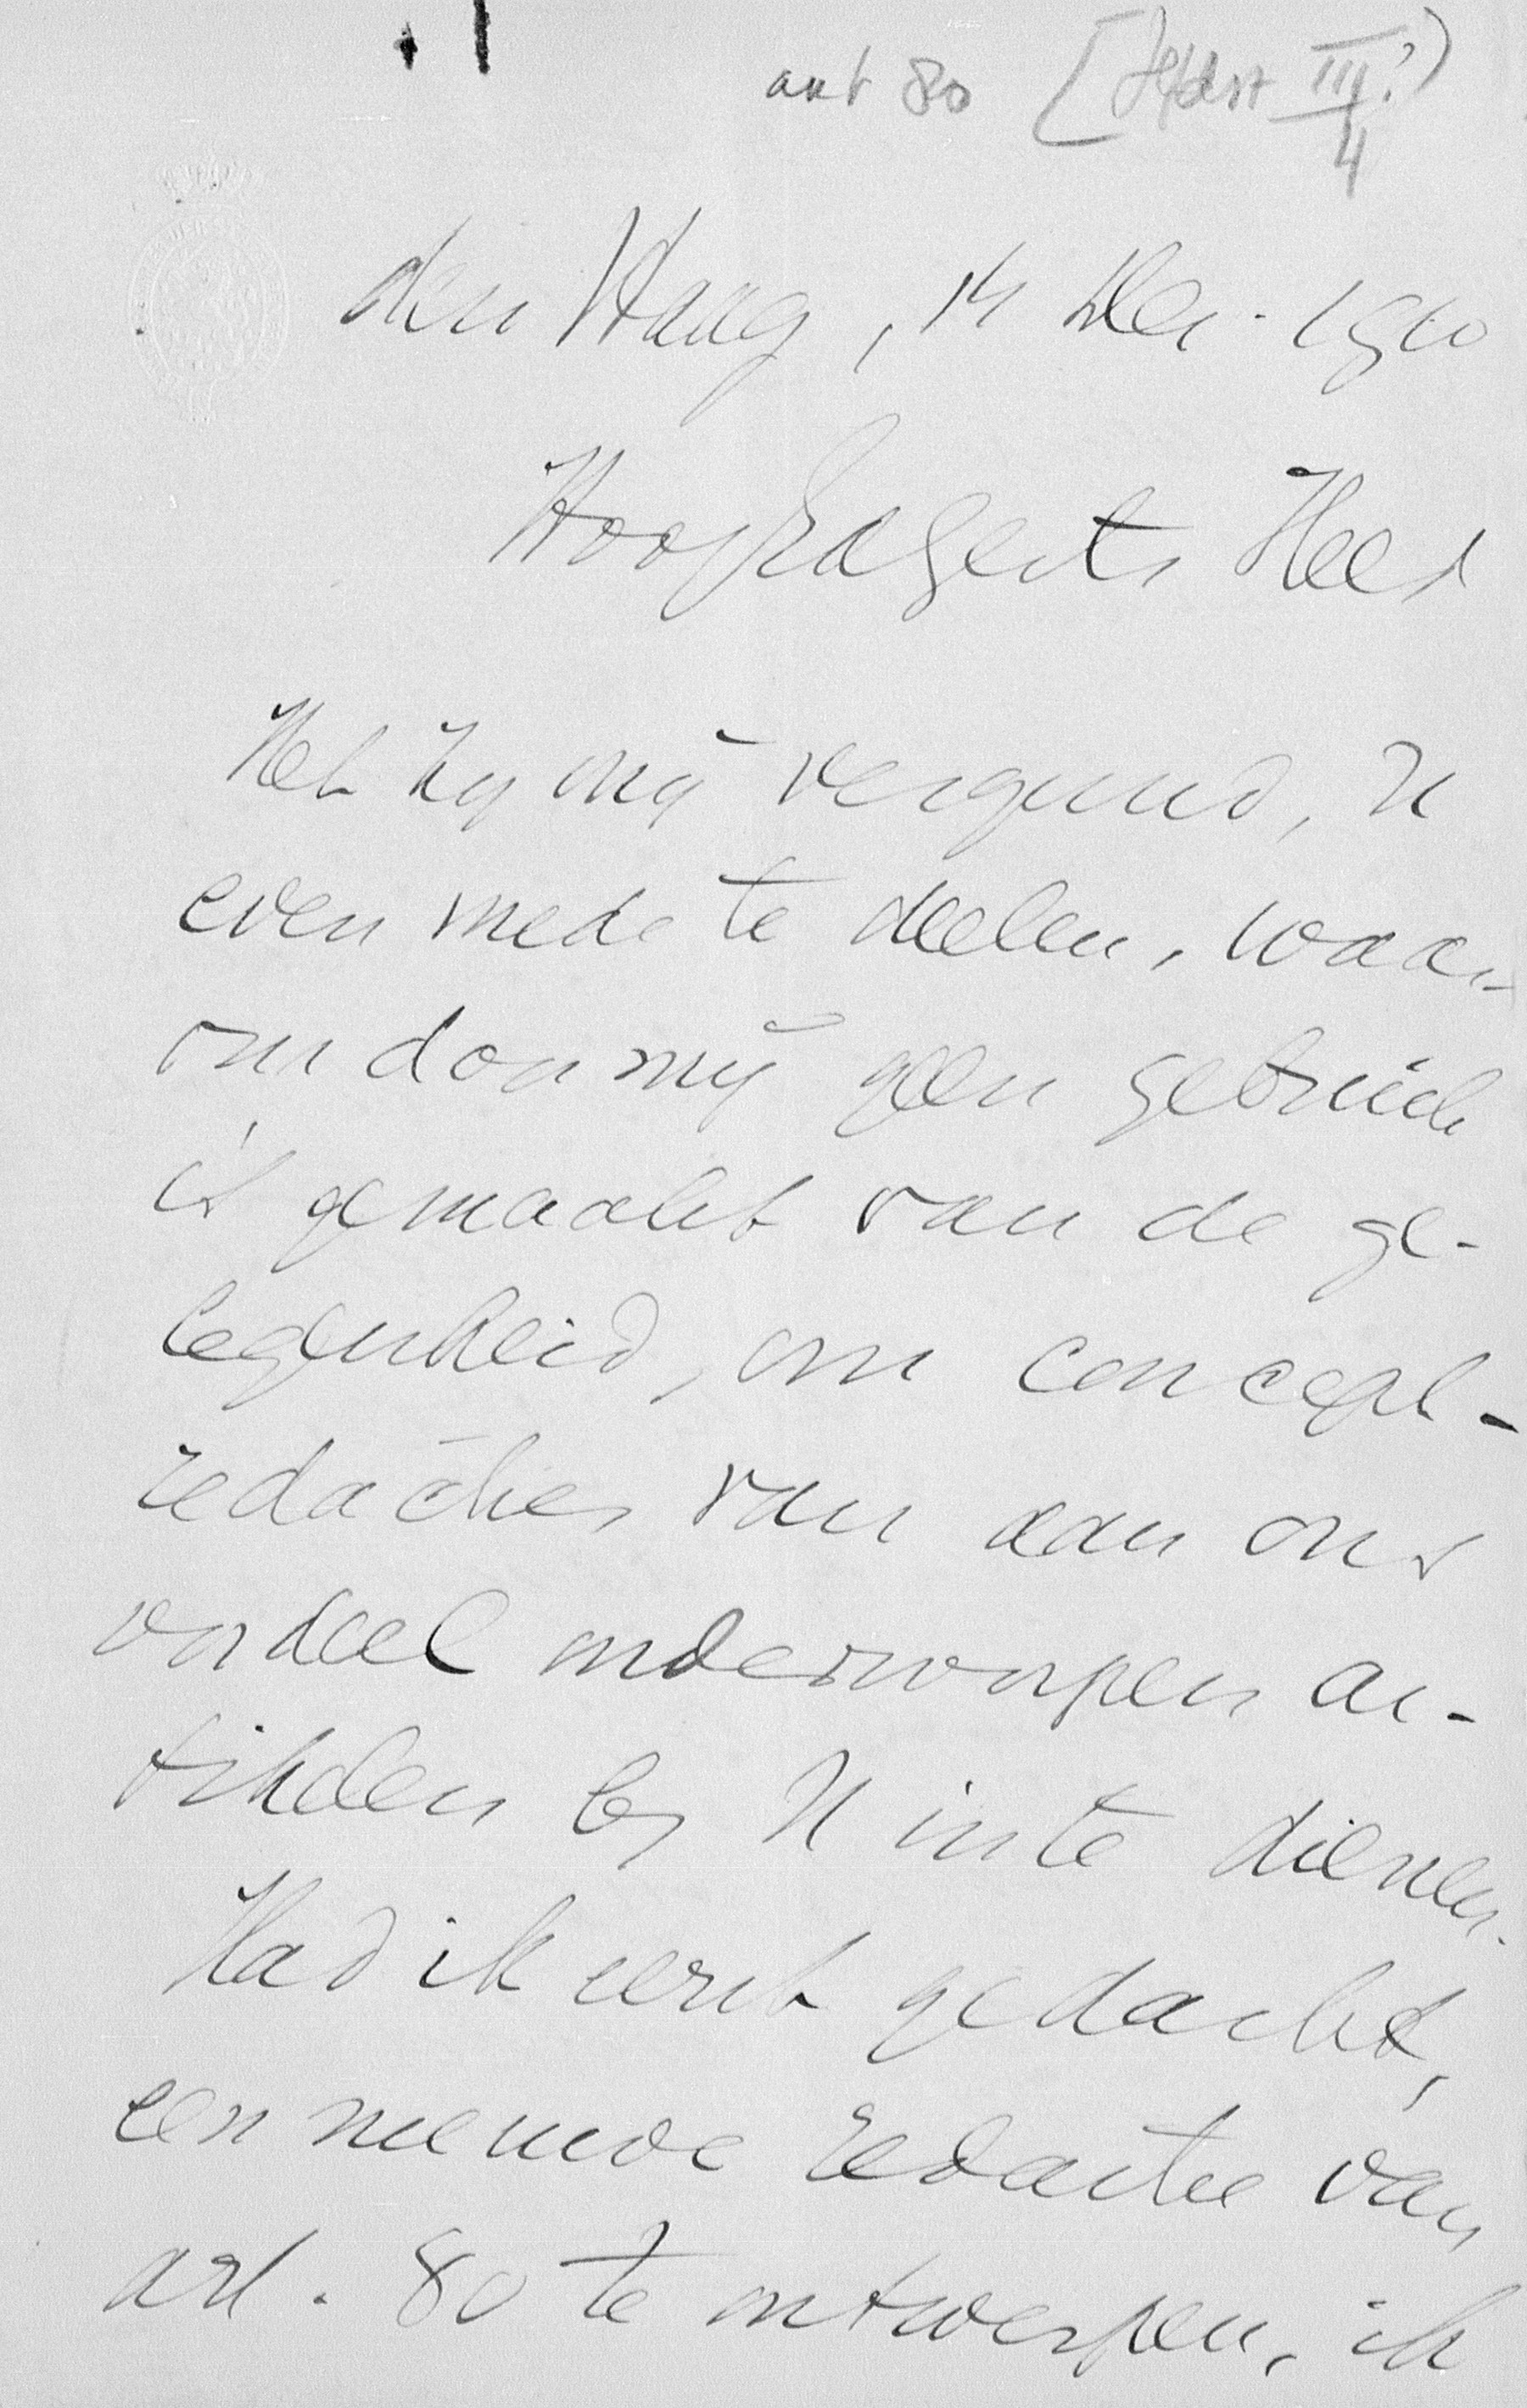 art 80 [Hfdst III?)
4
den Haag, 14 Dec. 1910
Hoogedelgestr. Heer
Het zij mij vergund, U
even mede te deelen, waar-
om door mij geen gebruik
is gemaakt van de ge-
legenheid, om concept-
redacties van aan ons
oordeel onderworpen ar-
tikelen bij U in te dienen.
Had ik eerst gedacht,
een nieuwe redactie van
art. 80 te ontwerpen, ik